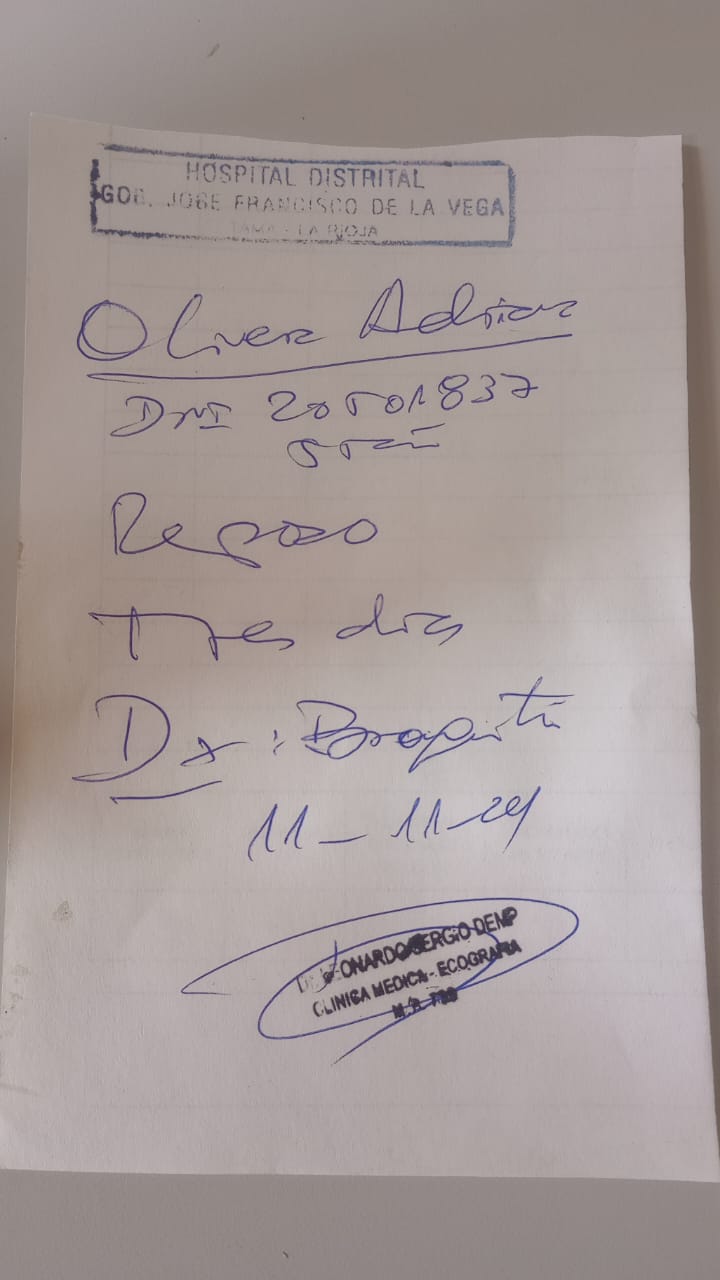 HOSPITAL DISTRITAL
GOB. JOSE FRANCISCO DE LA VEGA
TAMA - LA RIOJA
Olivera Adrian
DNI 20501837
Reposo
Tres dias
Dx:
11-11-24
LEONARDO SERGIO DEMP
CLINICA MEDICA - ECOGRAFIA